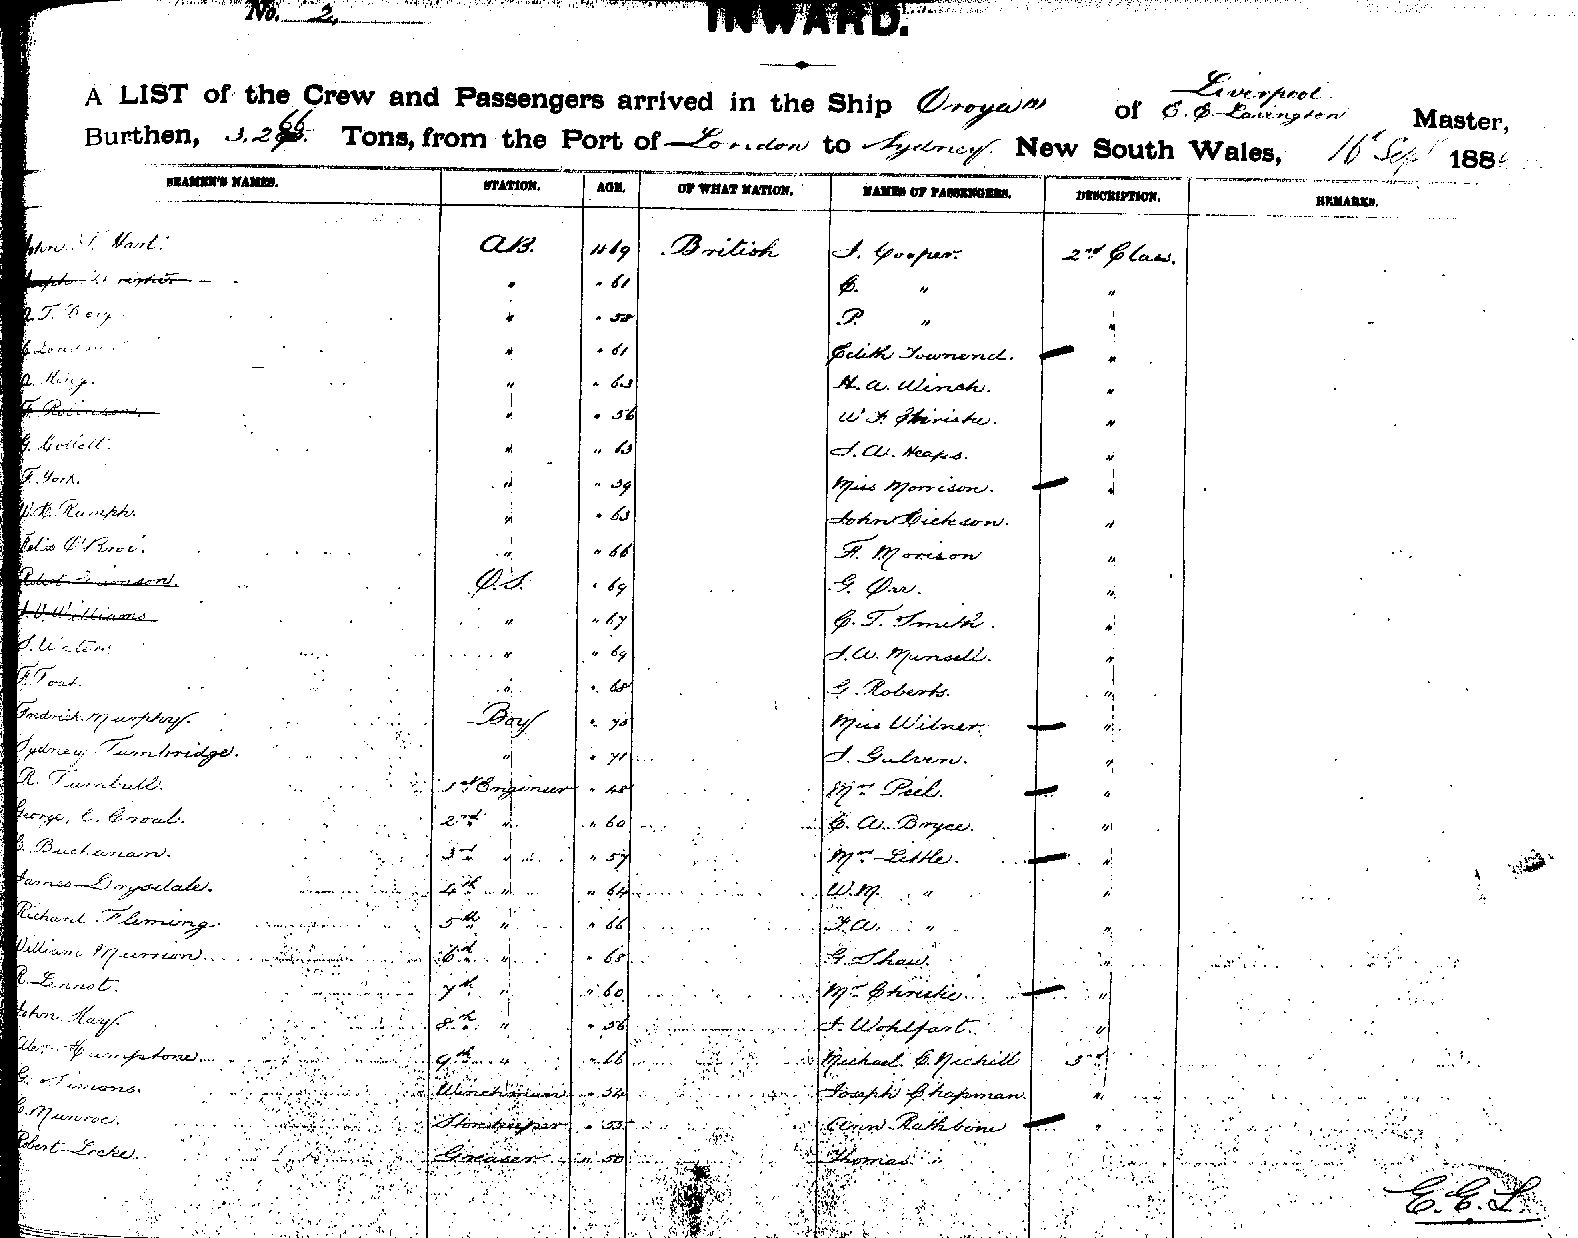 No. 2.
INWARD.
A LIST of the Crew and Passengers arrived in the Ship Oroya of Liverpool
E. E. Lavington Master,
Burthen, Tons, from the Port of London to Sydney New South Wales, 16 Sept 188
SEAMEN'S NAMES. STATION. AGE. OF WHAT NATION. NAMES OF PASSENGERS. DESCRIPTION. REMARKS.
John Hart AB. 69 British J. Cooper. 2nd Class.
" " 61 C. " "
T. Berg " " 58 P. " "
" " 61 Edith Townend. "
King. " " 63 H. A. Winch. "
F. Robinson " " 56 W F Christie. "
G. Collett. " " 63 J. A. Heaps. "
F. York. " " 59 Miss Morrison. "
Rumph. " " 63 John Dickson. "
" " 66 F. Morison "
O.S. " 69 G. Orr. "
Williams " " 67 C. T. Smith. "
Waters " " 69 J. A. Munsell. "
F. Toat. " " 68 G. Roberts. "
Fredrick Murphy. Boy " 70 Miss Wilner. "
Sydney Tumbridge. " " 71 J. Galven. "
R. Turnbull. 1st Engineer " 48 Mrs Peel. "
George C. Croal. 2nd " " 60 C. A. Bryce. "
Buchanan. 3rd " " 57 Mrs Little. "
James Drysdale. 4th " " 64 W. M. " "
Richard Fleming. 5th " " 66 F. A. " "
William Munion 6th " " 68 G. Shaw. "
R. Lennot. 7th " " 60 Mrs Christie. "
John Hay. 8th " " 56 J. Wohlfart. "
Alex Humpstone. 9th " " 66 Michael C. Nichill 3rd
G. Simons. Winchman " 54 Joseph Chapman "
Munroe. Storekeeper " 55 Ann Rathbone "
Robert Locke. Greaser " 50 Thomas "
E. E. L.